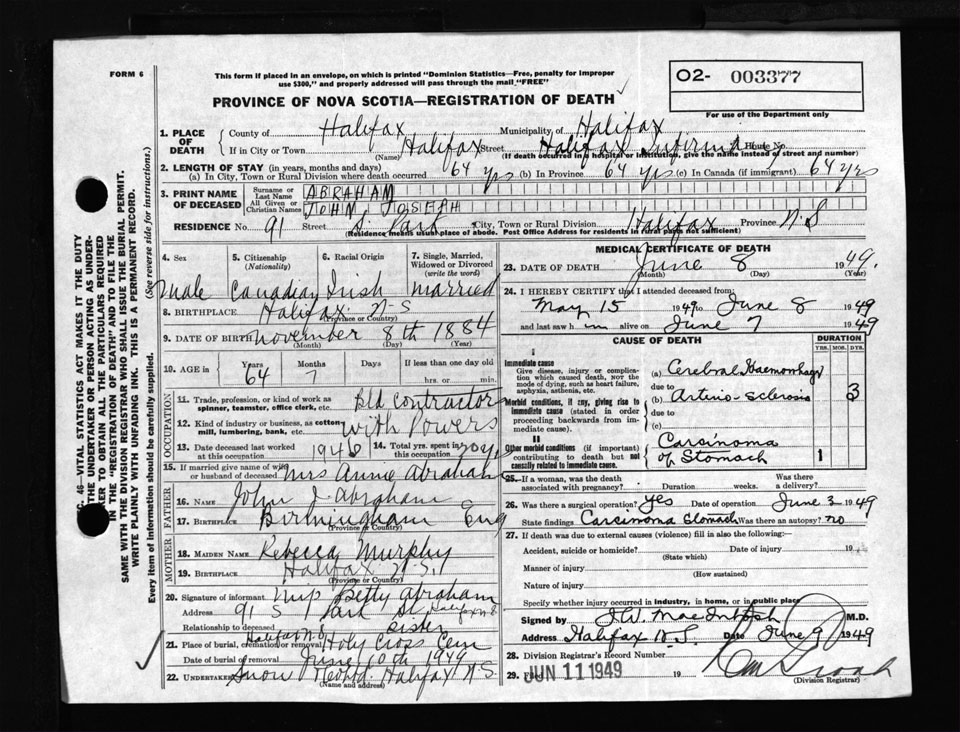 FORM 6
This form if placed in an envelope, on which is printed "Dominion Statistics—Free, penalty for improper
use $300," and properly addressed will pass through the mail "FREE"
O2- 003377
For use of the Department only
PROVINCE OF NOVA SCOTIA—REGISTRATION OF DEATH
1. PLACE OF DEATH
County of Halifax Municipality of Halifax
If in City or Town Halifax Street Halifax House No.
(Name) (If death occurred in a hospital or institution, give the name instead of street and number)
2. LENGTH OF STAY (in years, months and days)
(a) In City, Town or Rural Division where death occurred 64 yrs (b) In Province 64 yrs (c) In Canada (if immigrant) 64 yrs
3. PRINT NAME OF DECEASED
Surname or Last Name ABRAHAM
All Given or Christian Names JOHN JOSEPH
RESIDENCE No. 91 Street S. Park City, Town or Rural Division Halifax Province N.S
(Residence means usual place of abode. Post Office Address for residents in rural parts not sufficient)
4. Sex
Male
5. Citizenship (Nationality)
Canadian
6. Racial Origin
Irish
7. Single, Married, Widowed or Divorced (write the word)
Married
8. BIRTHPLACE Halifax N-S
(Province or Country)
9. DATE OF BIRTH November 8th 1884
(Month) (Day) (Year)
10. AGE in Years 64 Months 7 Days If less than one day old
hrs. or min.
OCCUPATION
11. Trade, profession, or kind of work as spinner, teamster, office clerk, etc. contractor
12. Kind of industry or business, as cotton mill, lumbering, bank, etc. with Powers
13. Date deceased last worked at this occupation 1946
14. Total yrs. spent in this occupation
15. If married give name of wife or husband of deceased Mrs Annie Abraham
FATHER
16. NAME John J Abraham
17. BIRTHPLACE Birmingham Eng
(Province or Country)
MOTHER
18. MAIDEN NAME Rebecca Murphy
19. BIRTHPLACE Halifax N.S.
(Province or Country)
20. Signature of informant Betty Abraham
Address 91 S Park St Halifax N S
Relationship to deceased sister
21. Place of burial, cremation or removal Halifax N.S Holy Cross Cem
Date of burial or removal June 10th 1949
22. Undertaker Snow Halifax N S
(Name and address)
MEDICAL CERTIFICATE OF DEATH
23. DATE OF DEATH June 8 1949.
(Month) (Day) (Year)
24. I HEREBY CERTIFY that I attended deceased from
May 15 1949 to June 8 1949
and last saw him alive on June 7 1949
CAUSE OF DEATH
DURATION
YRS. MOS. DYS.
I
Immediate cause
Give disease, injury or complication which caused death, NOT the mode of dying, such as heart failure, asphyxia, asthenia, etc.
(a) Cerebral Haemorrhage
due to
Morbid conditions, if any, giving rise to immediate cause (stated in order proceeding backwards from immediate cause)
(b) Arterio-Sclerosis 3
due to
(c)
II
Other morbid conditions (if important) contributing to death but not causally related to immediate cause.
Carcinoma
of Stomach 1
25. If a woman, was the death associated with pregnancy? Duration weeks. Was there a delivery?
26. Was there a surgical operation? Yes Date of operation June 3 1949
State findings Carcinoma Stomach Was there an autopsy? no
27. If death was due to external causes (violence) fill in also the following:—
Accident, suicide or homicide? Date of injury 19
(State which)
Manner of injury
(How sustained)
Nature of injury
Specify whether injury occurred in industry, in home, or in public place
Signed by J.W. MacIntosh M.D.
Address Halifax N.S. Date June 9 1949
28. Division Registrar's Record Number
29. Filed JUN 11 1949 19
(Division Registrar)
SEC. 46—VITAL STATISTICS ACT MAKES IT THE DUTY
OF THE UNDERTAKER OR PERSON ACTING AS UNDER-
TAKER TO OBTAIN ALL THE PARTICULARS REQUIRED
IN THE "REGISTRATION OF DEATH" AND TO FILE THE
SAME WITH THE DIVISION REGISTRAR WHO SHALL ISSUE THE BURIAL PERMIT.
WRITE PLAINLY WITH UNFADING INK. THIS IS A PERMANENT RECORD.
Every item of information should be carefully supplied. (See reverse side for instructions.)